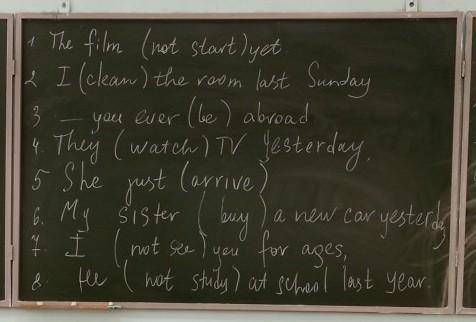 1 The film (not start) yet.
2 I (clean) the room last Sunday
3 __ you ever (be) abroad
4. They (watch) TV yesterday.
5 She just (arrive)
6. My sister (buy) a new car yesterday
7. I (not see) you for ages,
8. He (not study) at school last year.